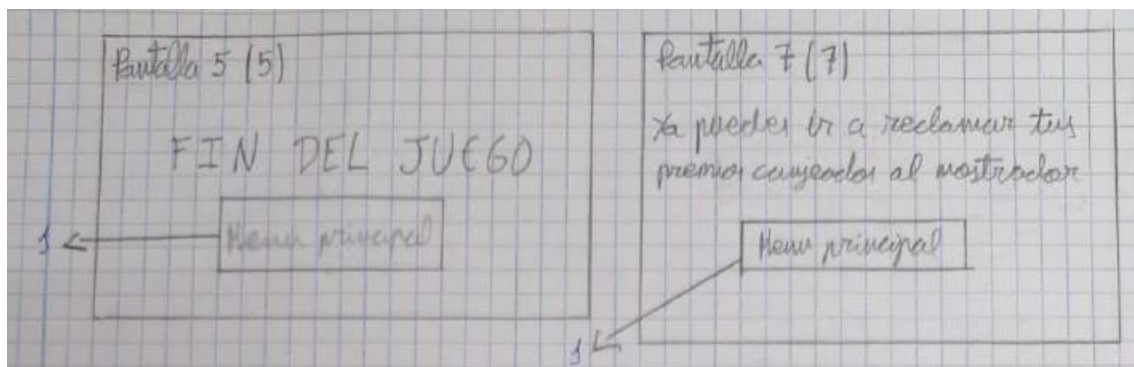 Pantalla 5 (5)
FIN DEL JUEGO
Menu principal
1
Pantalla 7 (7)
Ya puedes ir a reclamar tus
premios canjeados al mostrador
Menu principal
1